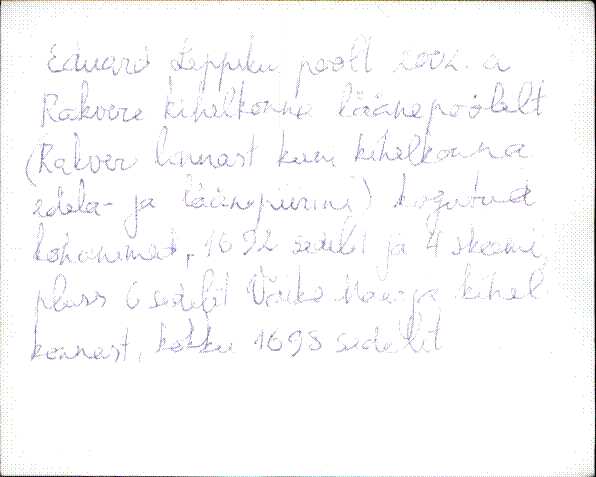 Eduard Leppiku poolt 2002. a
Rakvere kihelkonna läänepoolelt
(Rakvere linnast kuni kihelkonna
edela- ja läänepiirini) kogutud
kohanimed, 1692 sedelit ja 4 skeemi,
pluss 6 sedelit Väike-Maarja kihel-
konnast, kokku 1698 sedelit